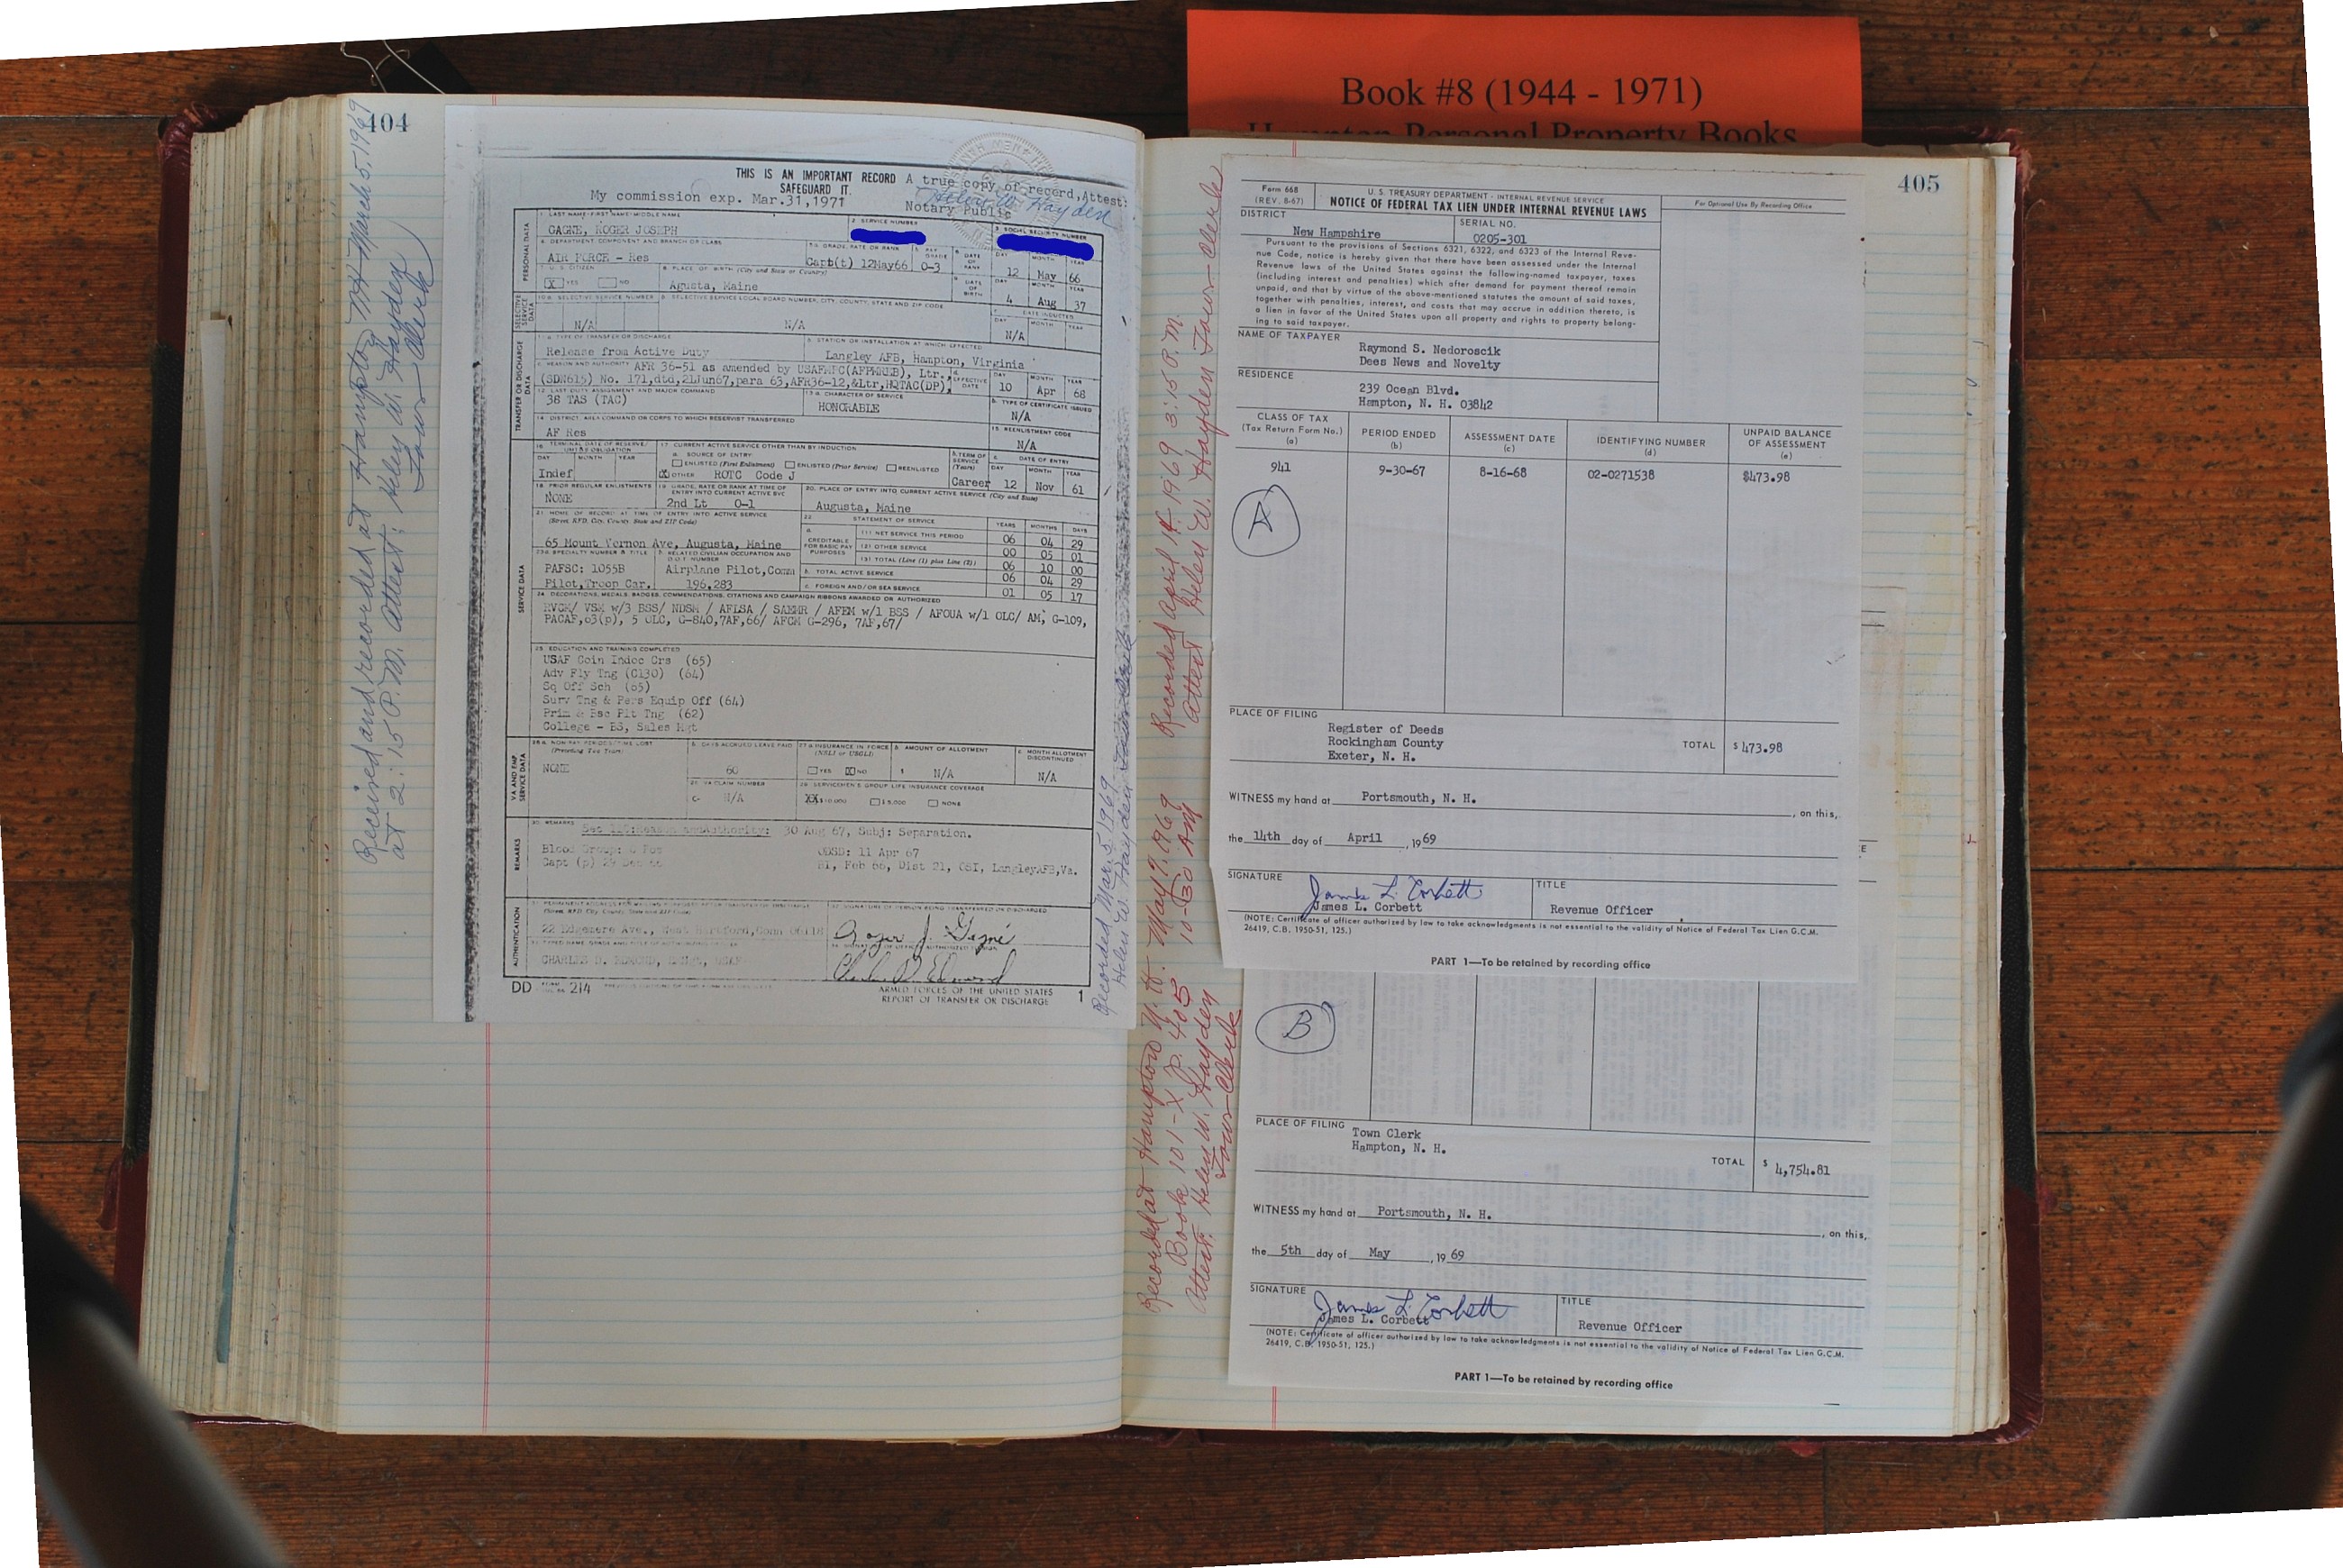 Book #8 (1944 - 1971)
Hampton Personal Property Books
404
Received and recorded at Hampton N H March 5, 1969
at 2:15 P.M. Attest: Helen W. Hayden
Town Clerk
THIS IS AN IMPORTANT RECORD
SAFEGUARD IT.
A true copy of record, Attest:
My commission exp. Mar.31,1971
Helen W. Hayden
Notary Public
PERSONAL DATA
1. LAST NAME-FIRST NAME-MIDDLE NAME
GAGNE, ROGER JOSEPH
2. SERVICE NUMBER
3. SOCIAL SECURITY NUMBER
4. DEPARTMENT, COMPONENT AND BRANCH OR CLASS
AIR FORCE - Res
5a. GRADE, RATE OR RANK
Capt(t) 12May66
PAY GRADE
O-3
6. DATE OF RANK
DAY MONTH YEAR
12 May 66
7. U.S. CITIZEN
X YES NO
8. PLACE OF BIRTH (City and State or Country)
Agusta, Maine
9. DATE OF BIRTH
DAY MONTH YEAR
4 Aug 37
SELECTIVE SERVICE DATA
10a. SELECTIVE SERVICE NUMBER
N/A
b. SELECTIVE SERVICE LOCAL BOARD NUMBER, CITY, COUNTY, STATE AND ZIP CODE
N/A
c. DATE INDUCTED
DAY MONTH YEAR
N/A
TRANSFER OR DISCHARGE DATA
11a. TYPE OF TRANSFER OR DISCHARGE
Release from Active Duty
b. STATION OR INSTALLATION AT WHICH EFFECTED
Langley AFB, Hampton, Virginia
c. REASON AND AUTHORITY
AFR 36-51 as amended by Ltr,
(SDN615) No. 171,dtd,21Jun67,para 63,AFR36-12,&Ltr,HQTAC(DP),
EFFECTIVE DATE
DAY MONTH YEAR
10 Apr 68
12. LAST DUTY ASSIGNMENT AND MAJOR COMMAND
38 TAS (TAC)
13a. CHARACTER OF SERVICE
HONORABLE
b. TYPE OF CERTIFICATE ISSUED
N/A
14. DISTRICT, AREA COMMAND OR CORPS TO WHICH RESERVIST TRANSFERRED
AF Res
15. REENLISTMENT CODE
N/A
SERVICE DATA
16. TERMINAL DATE OF RESERVE/
UMT&S OBLIGATION
DAY MONTH YEAR
Indef
17. CURRENT ACTIVE SERVICE OTHER THAN BY INDUCTION
a. SOURCE OF ENTRY:
ENLISTED (First Enlistment) ENLISTED (Prior Service) REENLISTED
X OTHER ROTC Code J
b. TERM OF SERVICE (Years)
Career
c. DATE OF ENTRY
DAY MONTH YEAR
12 Nov 61
18. PRIOR REGULAR ENLISTMENTS
NONE
19. GRADE, RATE OR RANK AT TIME OF ENTRY INTO CURRENT ACTIVE SVC
2nd Lt O-1
20. PLACE OF ENTRY INTO CURRENT ACTIVE SERVICE (City and State)
Augusta, Maine
21. HOME OF RECORD AT TIME OF ENTRY INTO ACTIVE SERVICE
(Street, RFD, City, County, State and ZIP Code)
65 Mount Vernon Ave, Augusta, Maine
22. STATEMENT OF SERVICE
YEARS MONTHS DAYS
a. CREDITABLE FOR BASIC PAY PURPOSES
(1) NET SERVICE THIS PERIOD 06 04 29
(2) OTHER SERVICE 00 05 01
(3) TOTAL (Line (1) plus Line (2)) 06 10 00
b. TOTAL ACTIVE SERVICE 06 04 29
c. FOREIGN AND/OR SEA SERVICE 01 05 17
23a. SPECIALTY NUMBER & TITLE
PAFSC: 1055B
Pilot,Troop Car.
b. RELATED CIVILIAN OCCUPATION AND D.O.T. NUMBER
Airplane Pilot,Comm
196.283
24. DECORATIONS, MEDALS, BADGES, COMMENDATIONS, CITATIONS AND CAMPAIGN RIBBONS AWARDED OR AUTHORIZED
RVCM/ VSM w/3 BSS/ NDSM / AFLSA / SAEMR / AFEM w/1 BSS / AFOUA w/1 OLC/ AM, G-109,
PACAF,63(p), 5 OLC, G-840,7AF,66/ AFCM G-296, 7AF,67/
25. EDUCATION AND TRAINING COMPLETED
USAF Coin Indoc Crs (65)
Adv Fly Tng (C130) (64)
Sq Off Sch (65)
Surv Tng & Pers Equip Off (64)
Prim & Bsc Plt Tng (62)
College - BS, Sales Mgt
VA AND EMP SERVICE DATA
26a. NON-PAY PERIODS/TIME LOST
(Preceding Two Years)
NONE
b. DAYS ACCRUED LEAVE PAID
60
27a. INSURANCE IN FORCE
(NSLI or USGLI)
YES X NO
b. AMOUNT OF ALLOTMENT
$ N/A
c. MONTH ALLOTMENT DISCONTINUED
N/A
28. VA CLAIM NUMBER
C- N/A
29. SERVICEMEN'S GROUP LIFE INSURANCE COVERAGE
XX $10,000 $5,000 NONE
REMARKS
30. REMARKS
Sec 11c:Reason and Authority: 30 Aug 67, Subj: Separation.
Blood Group: Pos
ODSD: 11 Apr 67
Capt (p)
BI, Feb 66, Dist 21, OSI, LangleyAFB,Va.
AUTHENTICATION
22 Edgemere Ave., West Hartford,Conn 06118
Roger J. Gagné
CHARLES D. EDMOND,
Charles D. Edmond
DD FORM 214
ARMED FORCES OF THE UNITED STATES
REPORT OF TRANSFER OR DISCHARGE
1
Recorded Mar. 5, 1969
Helen W. Hayden Town Clerk
405
Recorded April 14, 1969 3:15 P.M.
Attest Helen W. Hayden Town Clerk
Form 668
(REV. 8-67)
U. S. TREASURY DEPARTMENT - INTERNAL REVENUE SERVICE
NOTICE OF FEDERAL TAX LIEN UNDER INTERNAL REVENUE LAWS
For Optional Use By Recording Office
DISTRICT
New Hampshire
SERIAL NO.
0205-301
Pursuant to the provisions of Sections 6321, 6322, and 6323 of the Internal Reve-
nue Code, notice is hereby given that there have been assessed under the Internal
Revenue laws of the United States against the following-named taxpayer, taxes
(including interest and penalties) which after demand for payment thereof remain
unpaid, and that by virtue of the above-mentioned statutes the amount of said taxes,
together with penalties, interest, and costs that may accrue in addition thereto, is
a lien in favor of the United States upon all property and rights to property belong-
ing to said taxpayer.
NAME OF TAXPAYER
Raymond S. Nedoroscik
Dees News and Novelty
RESIDENCE
239 Ocean Blvd.
Hampton, N. H. 03842
CLASS OF TAX
(Tax Return Form No.)
(a)
PERIOD ENDED
(b)
ASSESSMENT DATE
(c)
IDENTIFYING NUMBER
(d)
UNPAID BALANCE
OF ASSESSMENT
(e)
941 9-30-67 8-16-68 02-0271538 $473.98
A
PLACE OF FILING
Register of Deeds
Rockingham County
Exeter, N. H.
TOTAL $ 473.98
WITNESS my hand at Portsmouth, N. H. , on this,
the 14th day of April , 19 69
SIGNATURE
James L. Corbett
James L. Corbett
TITLE
Revenue Officer
(NOTE: Certificate of officer authorized by law to take acknowledgments is not essential to the validity of Notice of Federal Tax Lien G.C.M.
26419, C.B. 1950-51, 125.)
PART 1—To be retained by recording office
Recorded at Hampton N. H. May 7, 1969
Book 101-X P. 405 10:30 AM
Attest: Helen W. Hayden
Town Clerk
B
PLACE OF FILING
Town Clerk
Hampton, N. H.
TOTAL $ 4,754.81
WITNESS my hand at Portsmouth, N. H. , on this,
the 5th day of May , 19 69
SIGNATURE
James L. Corbett
James L. Corbett
TITLE
Revenue Officer
(NOTE: Certificate of officer authorized by law to take acknowledgments is not essential to the validity of Notice of Federal Tax Lien G.C.M.
26419, C.B. 1950-51, 125.)
PART 1—To be retained by recording office